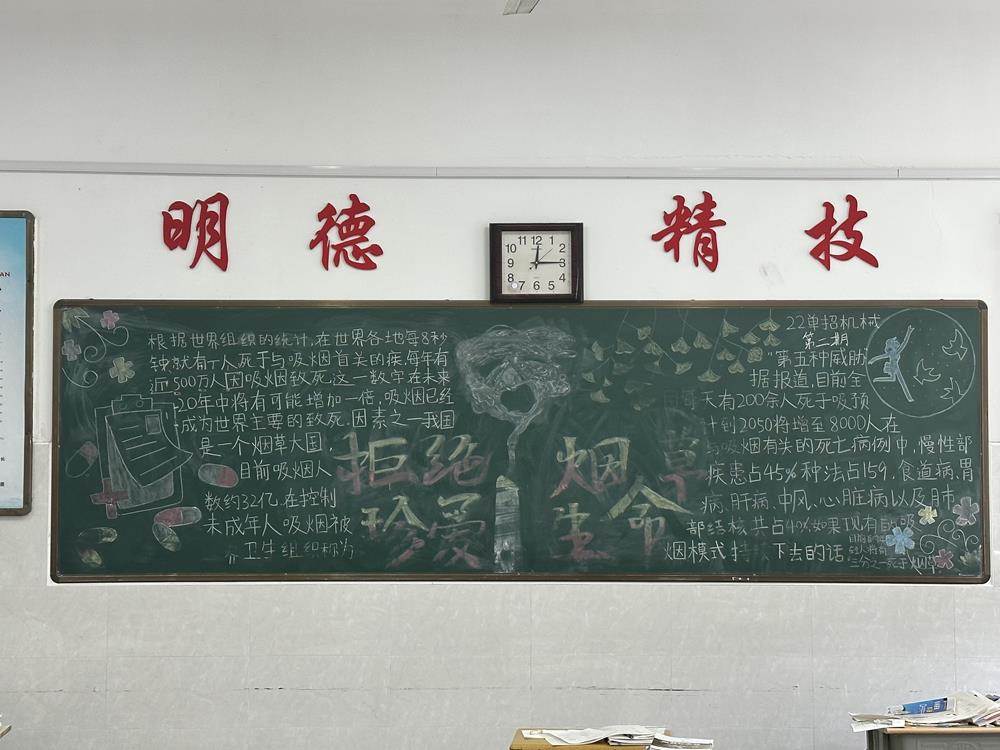 明德
精技
11 12 1
10 2
9 3
8 4
7 6 5
根据世界组织的统计,在世界各地每8秒
钟就有1人死于与吸烟首关的疾每年有
近500万人因吸烟致死这一数字在未来
20年中将有可能增加一倍,吸烟已经
成为世界主要的致死因素之一我国
是一个烟草大国,
目前吸烟人
数约32亿,在控制
未成年人吸烟被
卫生组织称为
拒绝烟草
珍爱生命
22单招机械
第二期
"第五种威胁
据报道,目前全
天有200余人死于吸预
计到2050将增至8000人在
与吸烟有关的死亡病例中,慢性部
疾患占45%种法占159,食道病,胃
病,肝病、中风、心脏病以及肺
部结核共占40%如果现有的吸
烟模式持 下去的话,
三分之一死于烟草